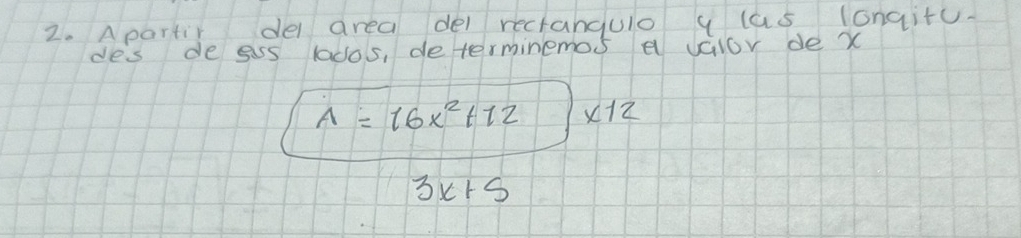 2. Apartir del area del rectangulo y las longitu-
des de sus lados, determinemos el valor de x
A = 16x²+12 x12
3x+5